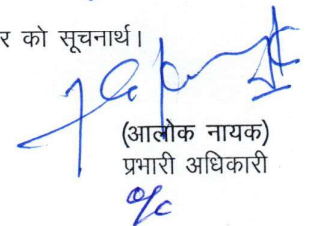 र को सूचनार्थ।
(आलोक नायक)
प्रभारी अधिकारी
o/c